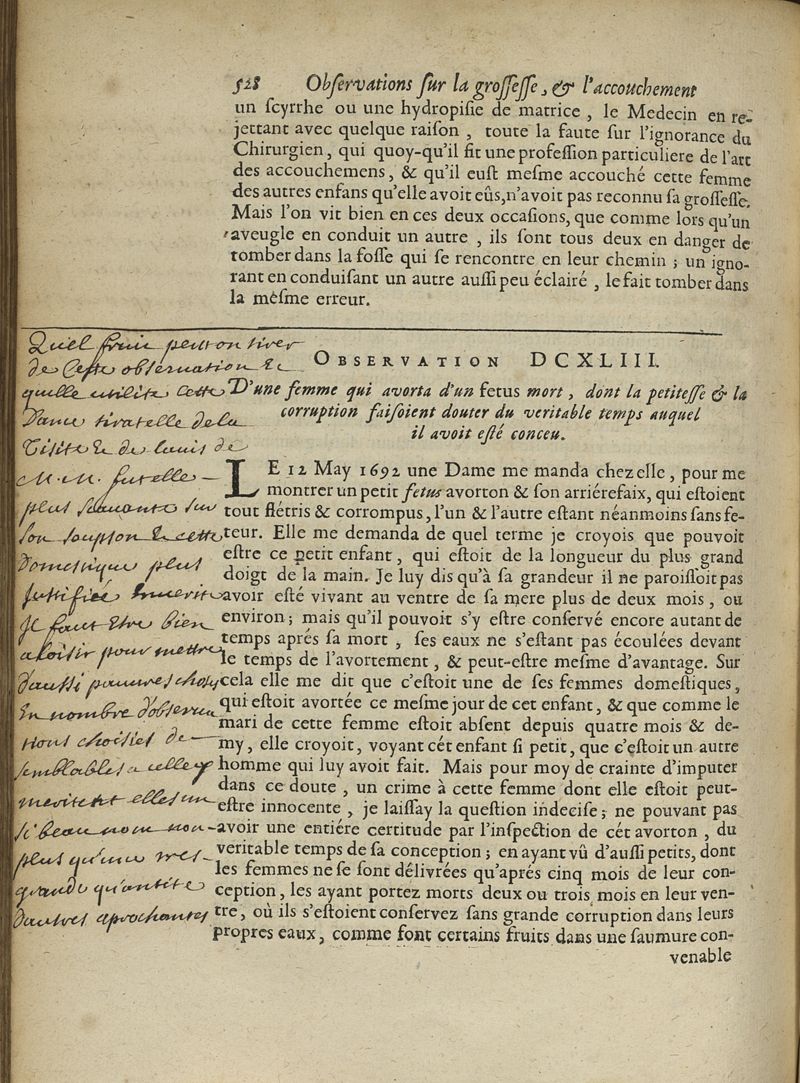 528 Observations sur la grossesse, & l'accouchement
un scyrrhe ou une hydropisie de matrice, le Medecin en re-
jettant avec quelque raison, toute la faute sur l'ignorance du
Chirurgien, qui quoy-qu'il fit une profession particuliere de l'art
des accouchemens, & qu'il eust mesme accouché cette femme
des autres enfans qu'elle avoit eûs, n'avoit pas reconnu sa grossesse.
Mais l'on vit bien en ces deux occasions, que comme lors qu'un
aveugle en conduit un autre, ils sont tous deux en danger de
tomber dans la fosse qui se rencontre en leur chemin; un igno-
rant en conduisant un autre aussi peu éclairé, le fait tomber dans
la mesme erreur.
OBSERVATION DCXLIII.
D'une femme qui avorta d'un fetus mort, dont la petitesse & la
corruption faisoient douter du veritable temps auquel
il avoit esté conceu.
LE 12 May 1692 une Dame me manda chez elle, pour me
montrer un petit fetus avorton & son arriérefaix, qui estoient
tout flétris & corrompus, l'un & l'autre estant néanmoins sans fe-
teur. Elle me demanda de quel terme je croyois que pouvoit
estre ce petit enfant, qui estoit de la longueur du plus grand
doigt de la main. Je luy dis qu'à sa grandeur il ne paroissoit pas
avoir esté vivant au ventre de sa mere plus de deux mois, ou
environ; mais qu'il pouvoit s'y estre conservé encore autant de
temps aprés sa mort, ses eaux ne s'estant pas écoulées devant
le temps de l'avortement, & peut-estre mesme d'avantage. Sur
cela elle me dit que c'estoit une de ses femmes domestiques,
qui estoit avortée ce mesme jour de cet enfant, & que comme le
mari de cette femme estoit absent depuis quatre mois & de-
my, elle croyoit, voyant cét enfant si petit, que c'estoit un autre
homme qui luy avoit fait. Mais pour moy de crainte d'imputer
dans ce doute, un crime à cette femme dont elle estoit peut-
estre innocente, je laissay la question indecise; ne pouvant pas
avoir une entiére certitude par l'inspection de cét avorton, du
veritable temps de sa conception; en ayant vû d'aussi petits, dont
les femmes ne se sont délivrées qu'aprés cinq mois de leur con-
ception, les ayant portez morts deux ou trois mois en leur ven-
tre, où ils s'estoient conservez sans grande corruption dans leurs
propres eaux, comme font certains fruits dans une saumure con-
venable
Quel fruit peut on tirer
de cette observation &
quelle utilité cette
Dame tira telle de la
visite & de l'avis de
M. M. fut elle
plus sçavante sur
son soupçon & cette
domestique plus
justifiée
il faut être bien
a loisir pour mettre
d'aussi pauvres choses
en nombre d'observa
tions choisies de
semblables a celle cy
meritent elles un
si beau nom non
plus qu'une tres
grande quantité
d'autres aprochantes